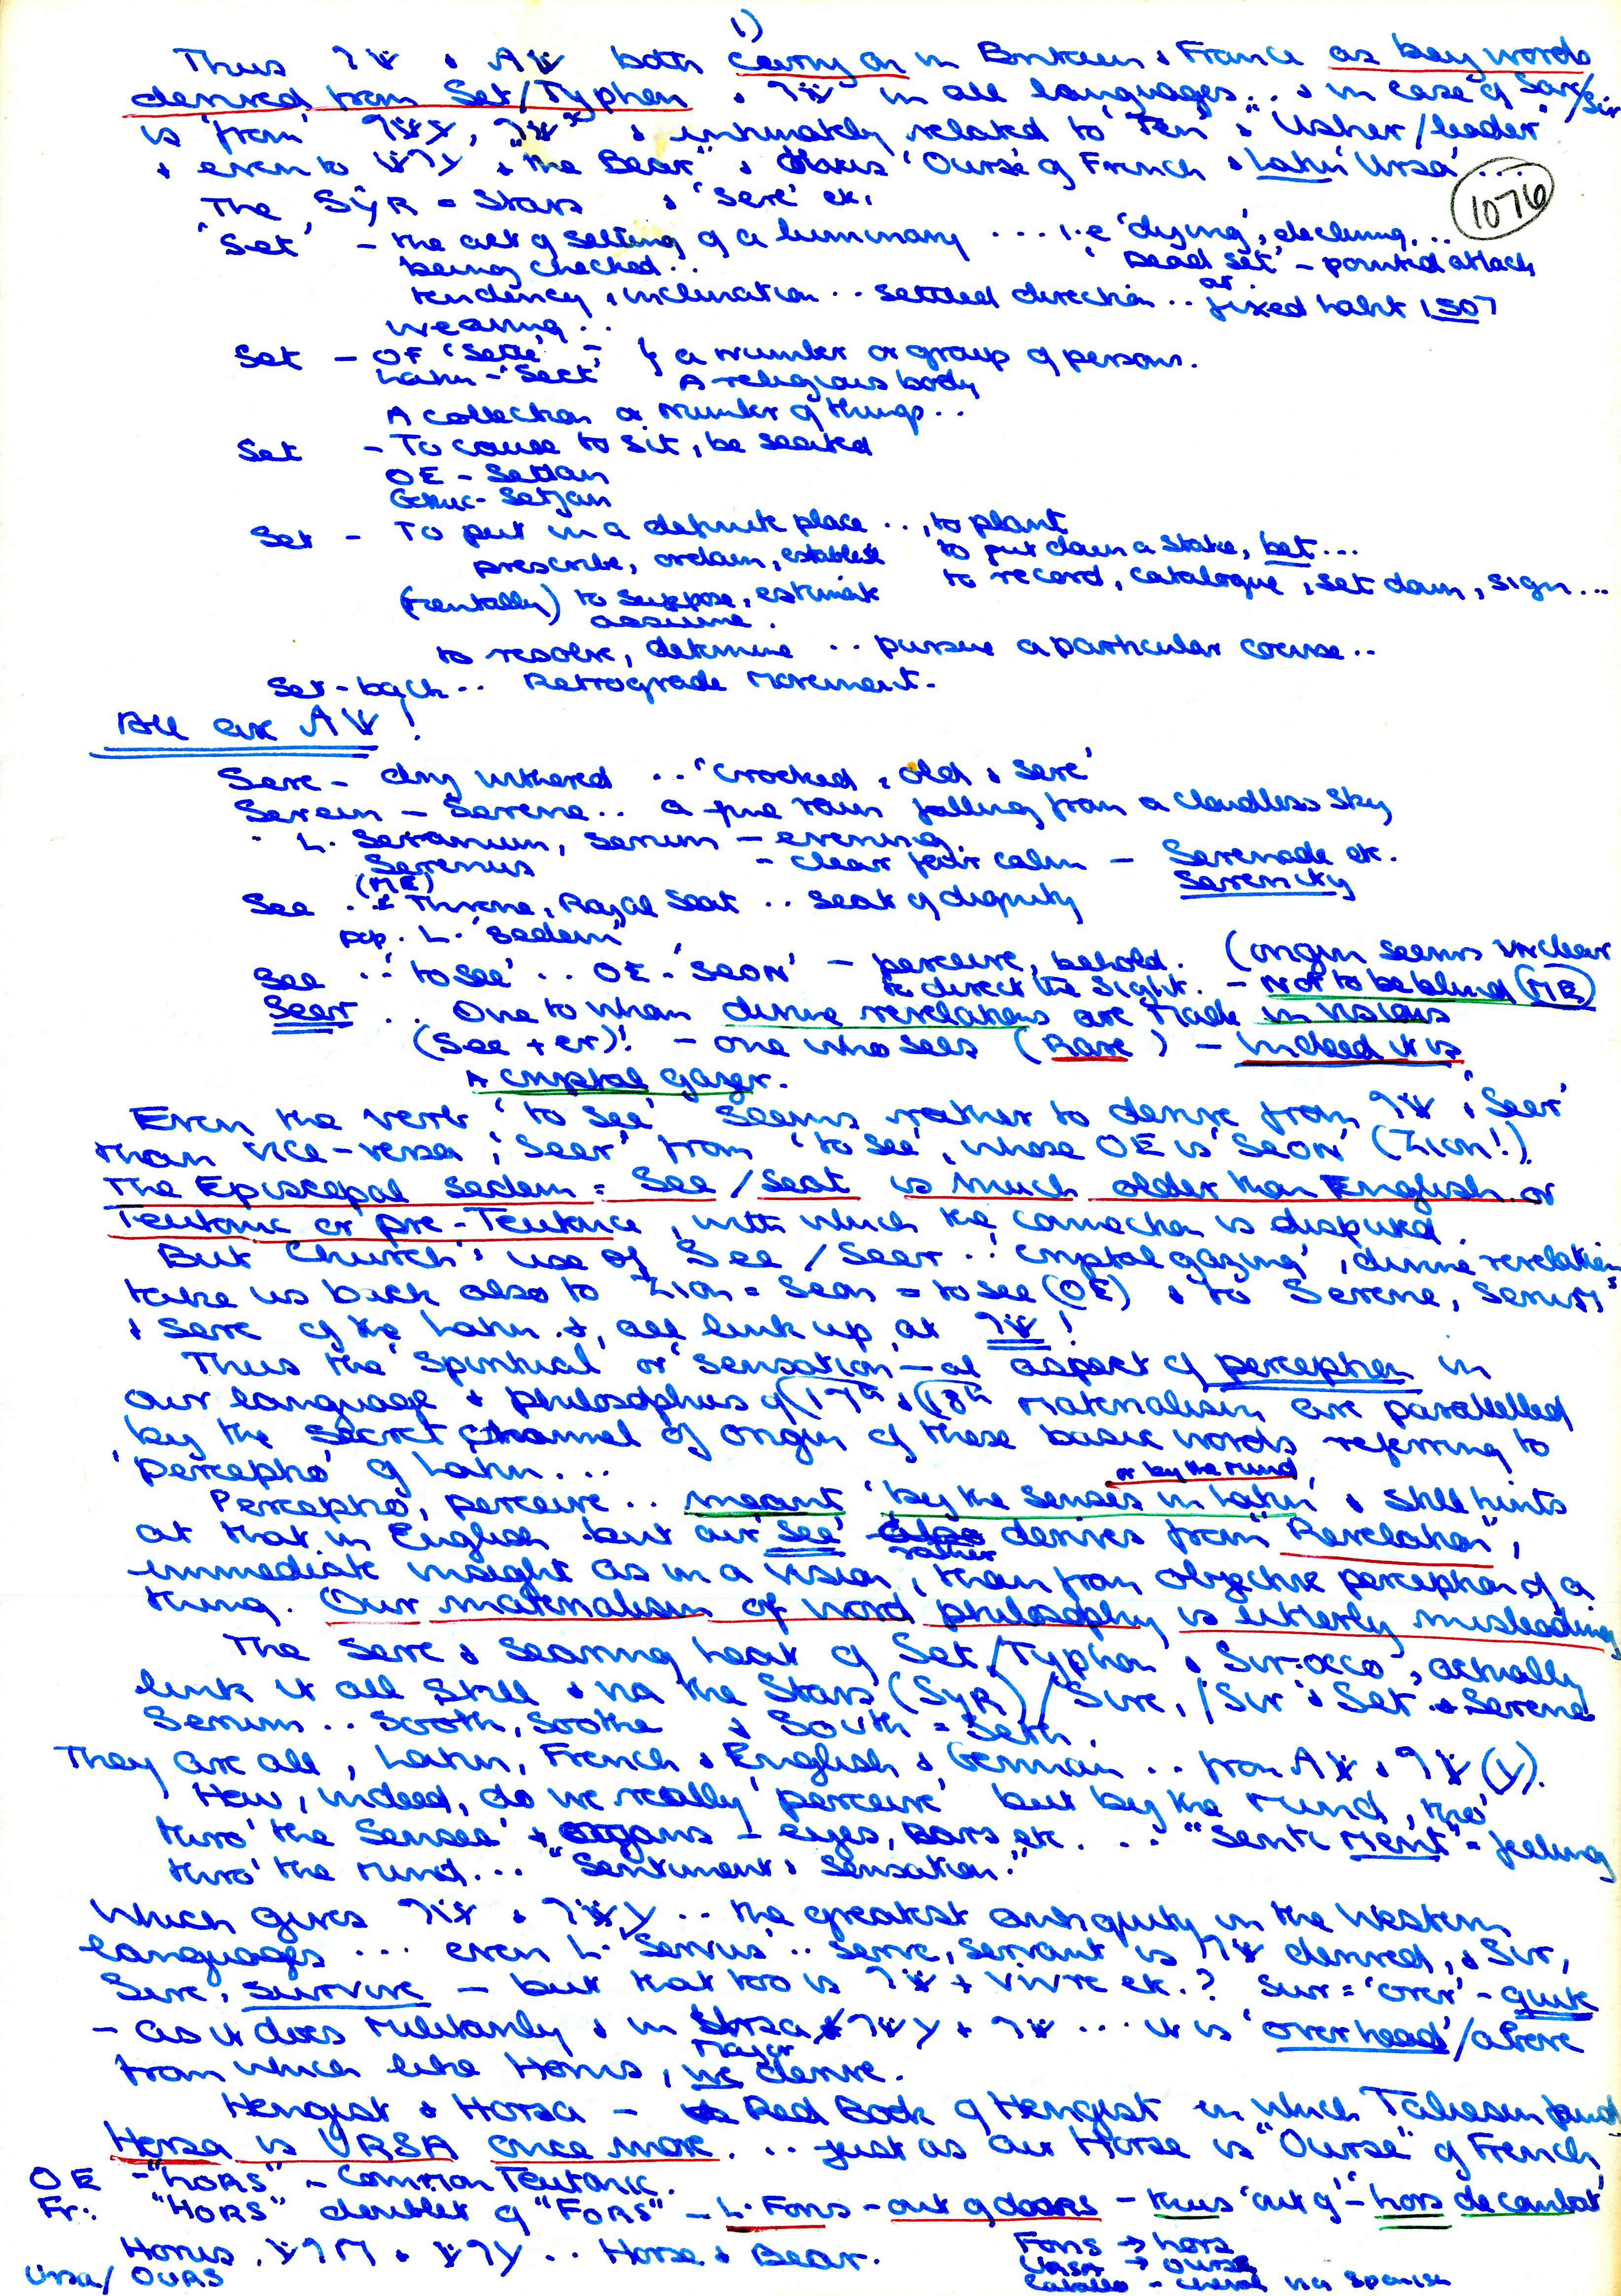 1)
Thus & both carry on in Britain & France as key words
derived from Set/Typhon & in all languages .. & in case of Sar/Sir
is 'from' & intimately related to 'Ten' & 'Usher/leader'
& even to & "the Bear" & thus 'Ourse' of French & Latin 'Ursa' ...
1076
The SYR = Stars & 'Sere' etc.
'Set' - the act of setting of a luminary ... i.e 'dying', declining...
being checked.. 'Dead set' - pointed attack
tendency, inclination .. settled direction .. or fixed habit 1507
wearing ..
Set - OF 'Sette' - } a number or group of persons.
Latin - 'Sect' A religious body
A collection or number of things..
Set - To cause to sit, be seated
OE - Settan
Gothic - Satjan
Set - To put in a definite place .., to plant
prescribe, ordain, establish to put down a stake, bet...
(mentally) to suppose, estimate to record, catalogue, set down, sign...
assume.
to resolve, determine .. pursue a particular course..
Set-back .. Retrograde movement.
All are !
Sere - dry withered .. 'Crooked, old & sere'
Serein - Serene.. a fine rain falling from a cloudless sky
L. Seranum, serum - evening.
Serenus - clear fair calm - Serenade etc.
Serenity
See .. (ME) Throne, Royal Seat .. seat of dignity
pop. L. 'Sedem'
See .. 'to see' .. OE - 'SEON' - perceive, behold. (origin seems unclear
to direct the sight. - not to be blind (ME)
Seer .. One to whom divine revelations are made in visions
(See + er)! - one who sees (Rare) - indeed it is
A crystal gazer.
Even the verb 'to see' seems rather to derive from , 'Seer'
than vice-versa; 'Seer' from 'to see', whose OE is 'SEON' (Zion!).
The Episcopal Sedem = See / Seat is much older than English or
Teutonic or pre-Teutonic, with which the connection is disputed.
But 'Church' use of See / Seer .. 'crystal gazing', divine revelations
take us back also to Zion = Seon = to see (OE) & to Serene, Serum
& Sere of the Latin &, all link up at !
Thus the 'Spiritual' or 'sensation'-al aspect of perception in
our language & philosophies of 17th & 18th materialism are parallelled
by the secret channel of origin of these basic words referring to
'perceptio' of Latin ...
Perceptio, perceive .. meant 'by the senses or by the mind in Latin' & still hints
at that in English but our 'see' derives from "Revelation",
immediate insight as in a vision, rather than from objective perception of a
thing. Our materialism of word philosophy is utterly misleading
The Sere & Searing heat of Set/Typhon & Sir-occo, actually
link it all still & via the Stars (SYR) / Sire, / Sir & Set & Serene
Serum .. Sooth, Soothe & South = Seth.
They are all, Latin, French & English & German .. from & (Y).
How, indeed, do we really 'perceive' but by the mind, tho'
thro' the Senses' & organs - eyes, ears etc. ... "Senti Ment" = feeling
thro' the mind... "Sentiment & Sensation."
Which gives & .. the greatest antiquity in the Western
languages ... even L. 'Servus' .. serve, servant is derived, & Sir,
Sire, survive - but that too is + vivre etc.? Sur = 'over' - quite
- as it does militantly & in Ursa Major & ... it is 'overhead'/above
from which like Horus, we derive.
Hengist & Horsa - Red Book of Hengist in which Taliesin found
Horsa is URSA once more. .. just as our Horse is "Ourse" of French
OE - "hORS" - Common Teutonic.
Fr: "HORS" doublet of "FORS" - L. Foris - out of doors - thus 'out of' - hors de combat'
Horus, & .. Horse & Bear.
Ursa/ OURS
Foris → hors
Ursa → ourse
Caballo - cheval via Spanish